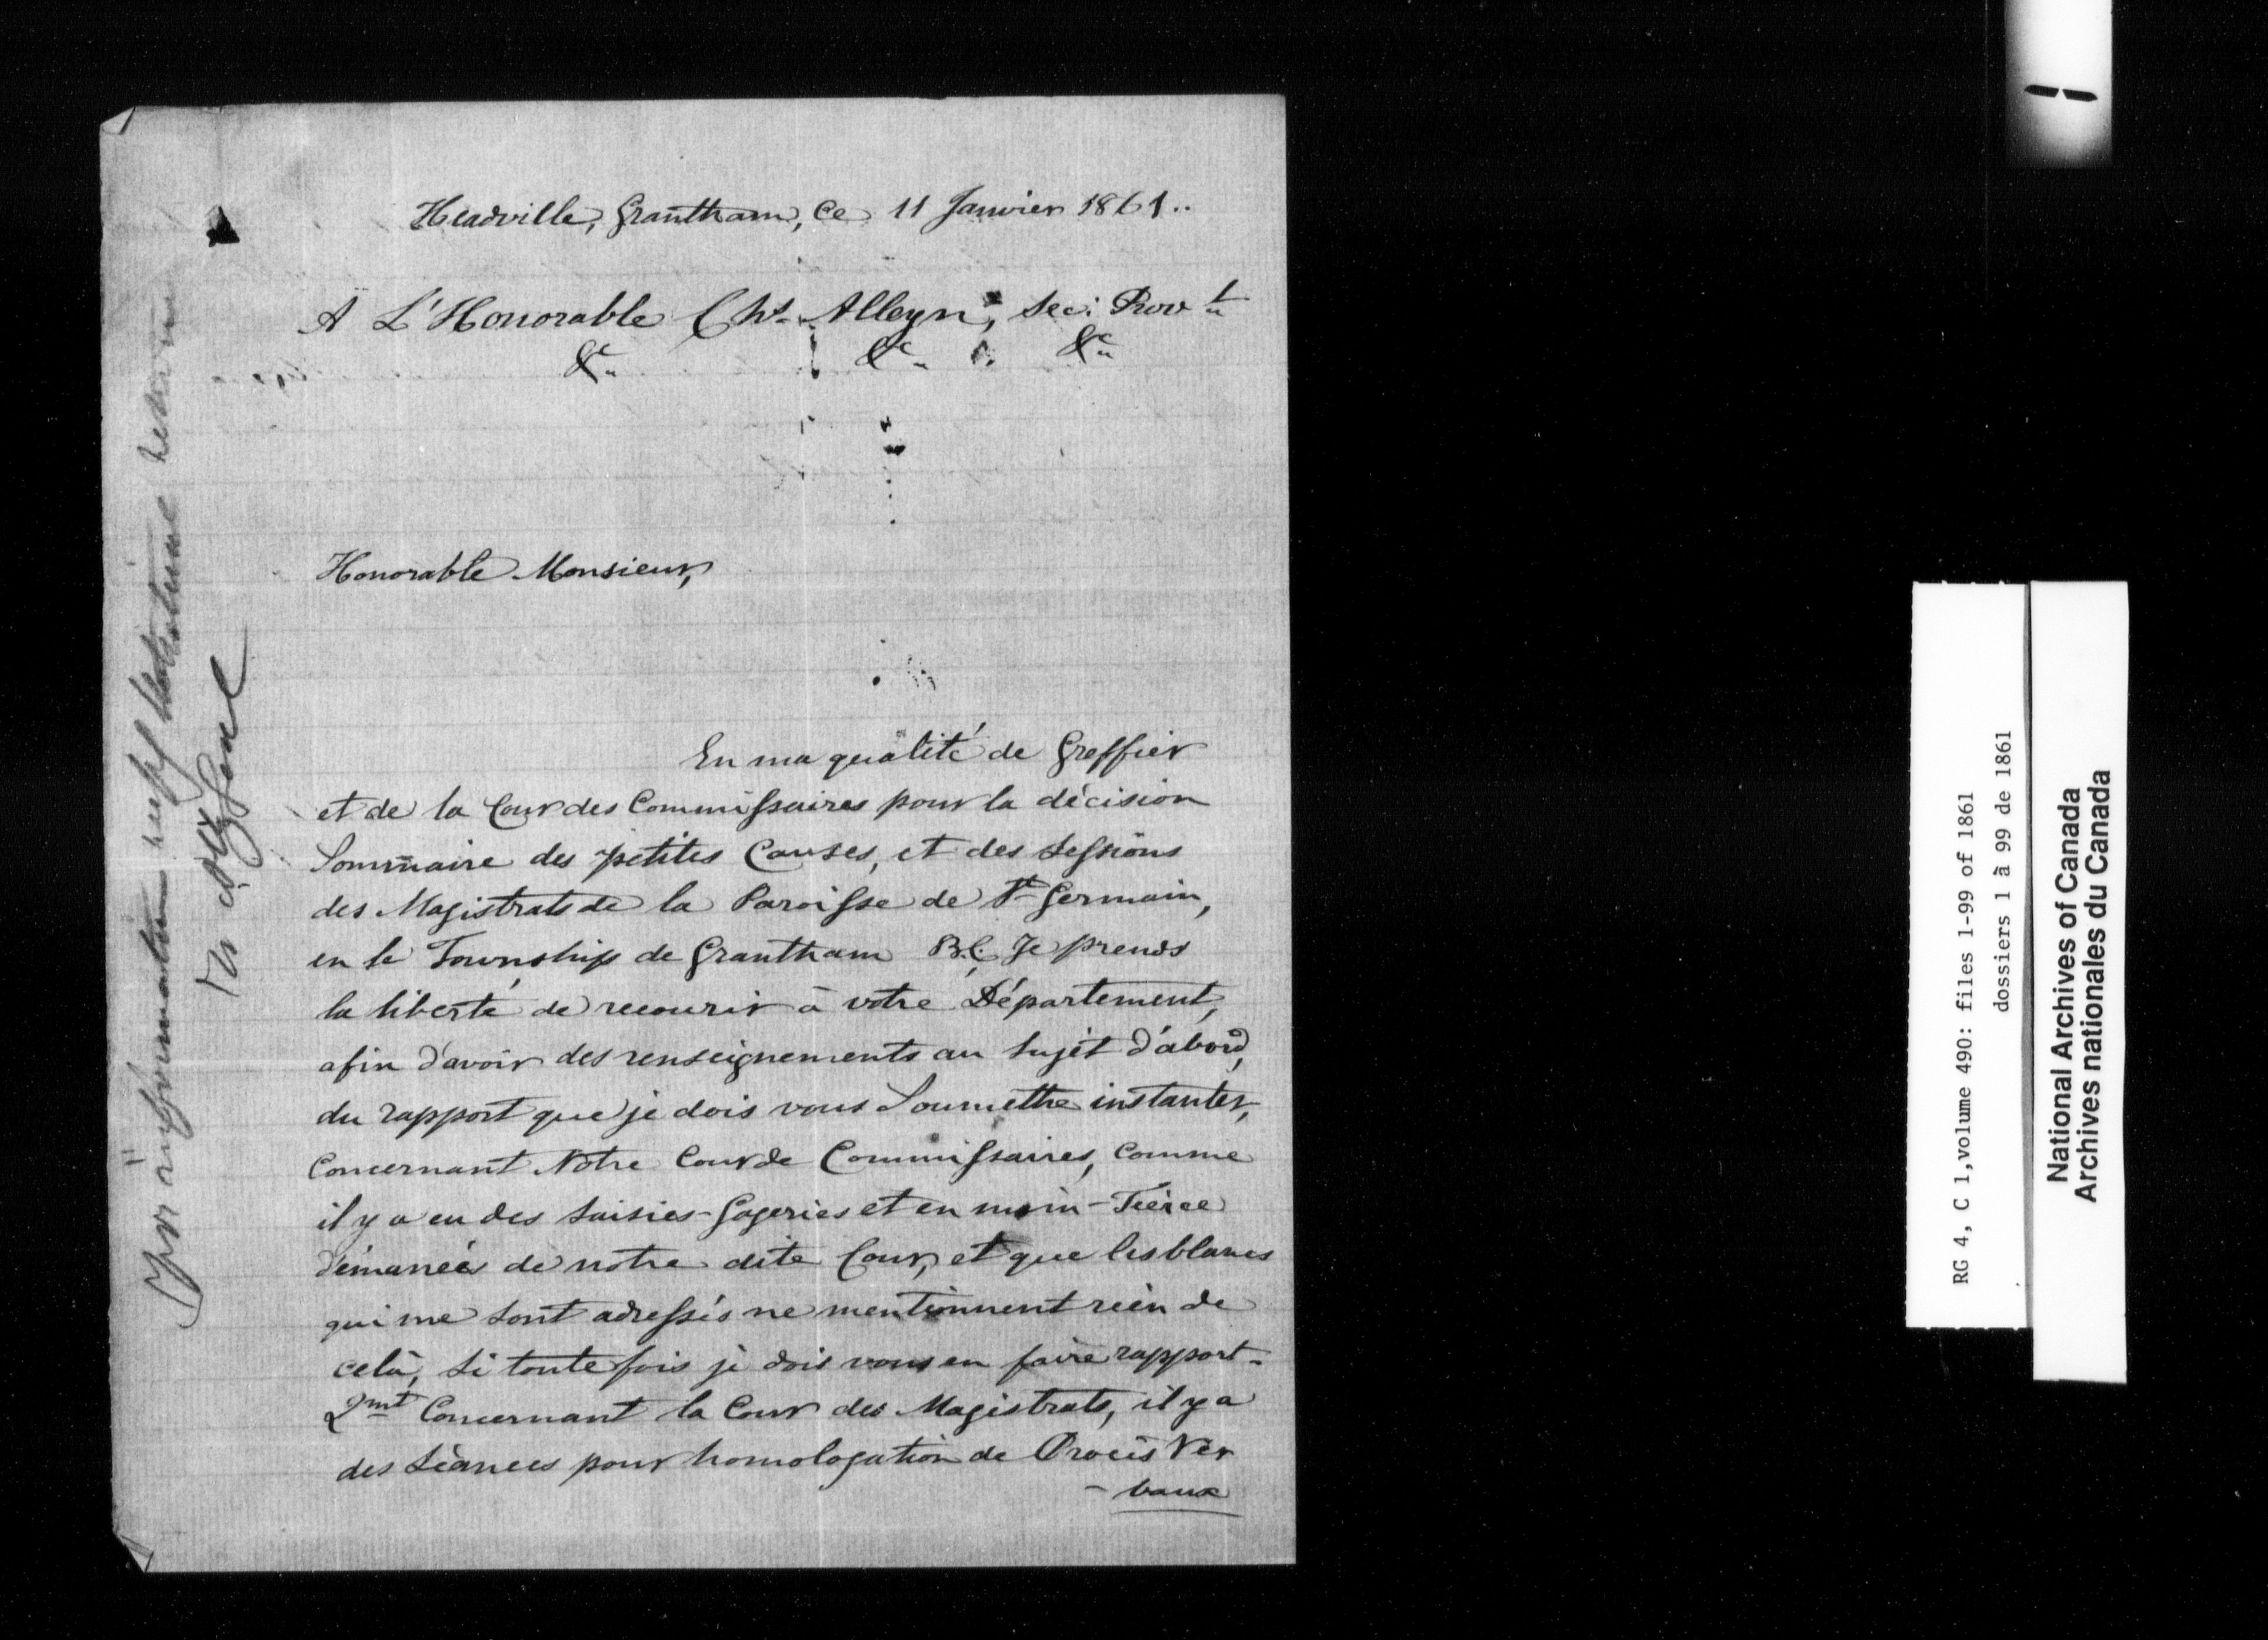 Headville, Grantham, Ce 11 Janvier 1861..
A L'Honorable Chs. Alleyn, Sec: Provl
&c &c &c
Honorable Monsieur,
En ma qualité de Greffier
et de la Cour des Commissaires pour la décision
Sommaire des petites Causes, et des Sessions
des Magistrats de la Paroisse de St Germain,
en le Township de Grantham B.C. Je prends
la liberté de recourir à votre Département,
afin d'avoir des renseignements au sujet d'abord,
du rapport que je dois vous Soumettre instanter,
Concernant Notre Cour de Commissaires, Comme
il y a eu des Saisies-Gageries et en main-Tierce
d'émanées de notre dite Cour, et que les blancs
qui me sont adressés ne mentionnent rien de
celà, Si toute fois je dois vous en faire rapport-
2mt Concernant la Cour des Magistrats, il y a
des Séances pour homologation de Procès Ver
- baux
For information
RG 4, C 1,volume 490: files 1-99 of 1861
dossiers 1 à 99 de 1861
National Archives of Canada
Archives nationales du Canada